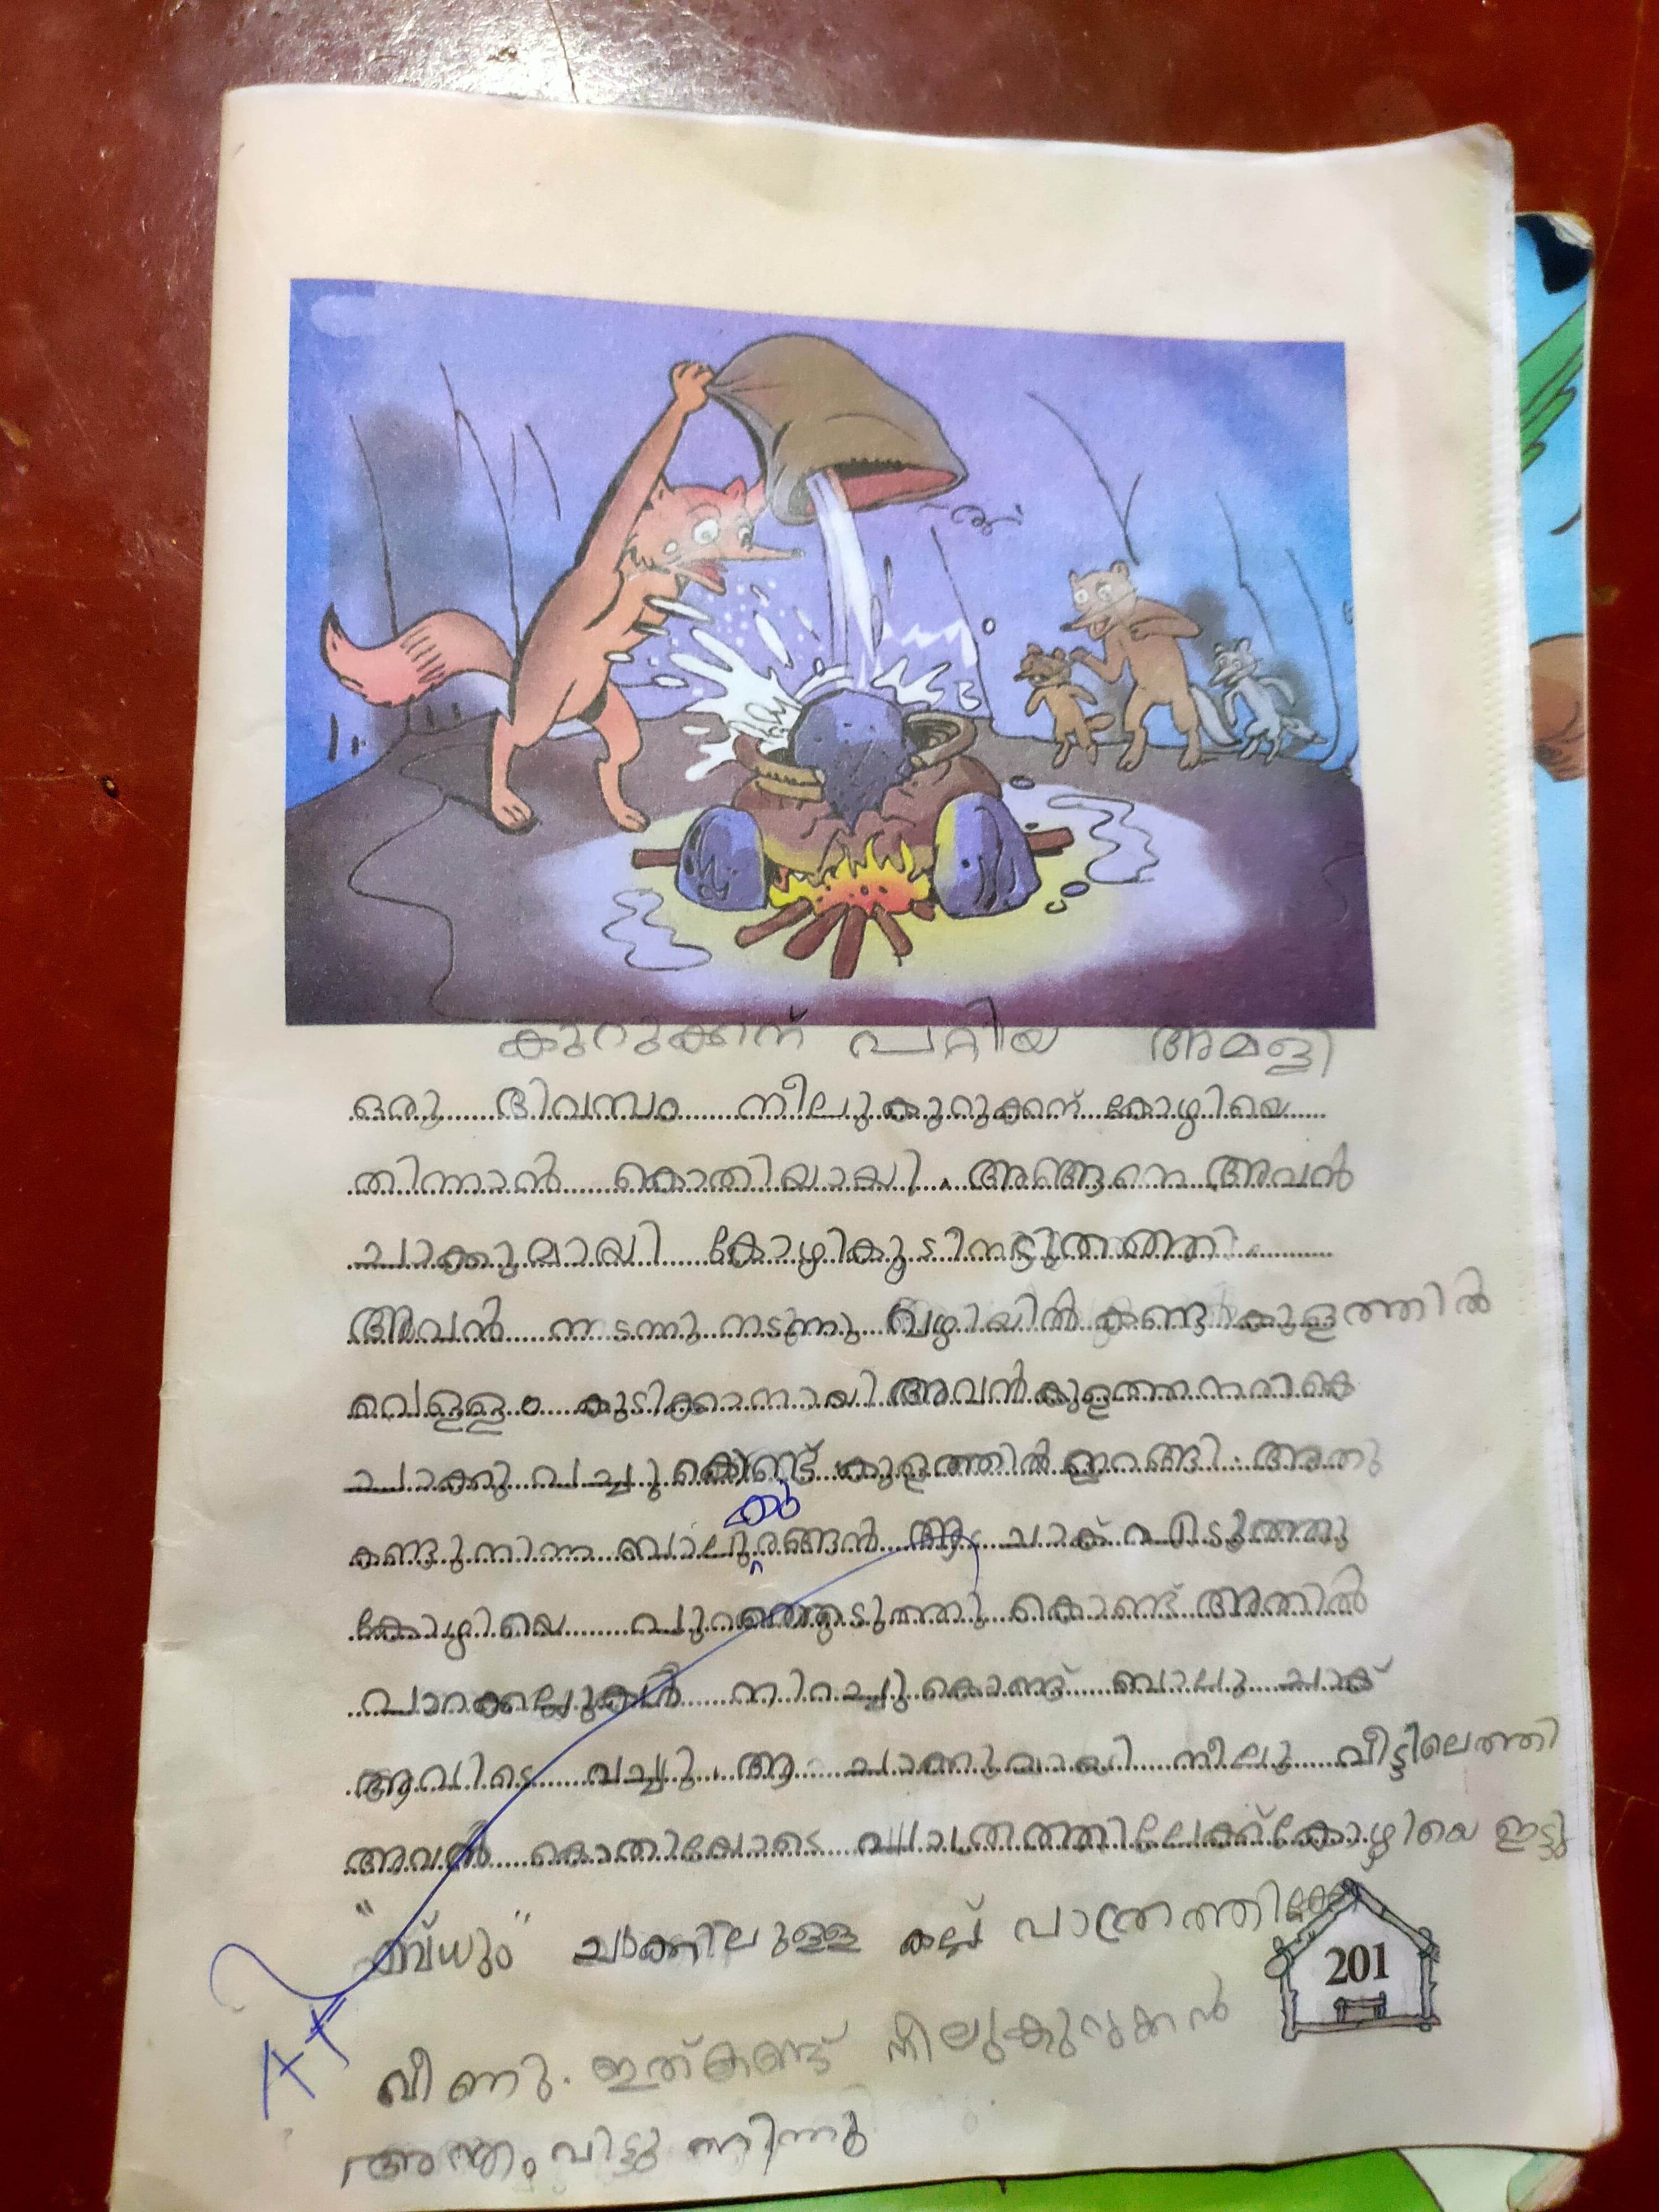 കുറുക്കന് പറ്റിയ അമളി
ഒരു ദിവസം നീലുകുറുക്കന് കോഴിയെ
തിന്നാൻ കൊതിയായി. അങ്ങനെ അവൻ
ചാക്കുമായി കോഴികൂടിനടുത്തെത്തി
അവൻ നടന്നു നടന്നു വഴിയിൽ കണ്ട കുളത്തിൽ
വെള്ളം കുടിക്കാനായി അവൻ കുളത്തിനരികെ
ചാക്കു വച്ചു കൊണ്ട് കുളത്തിൽ ഇറങ്ങി. അതു
കണ്ടുനിന്ന ബാലു
കു
രങ്ങൻ ആ ചാക് എടുത്തു
കോഴിയെ പുറത്തെടുത്തു കൊണ്ട് അതിൽ
പാറക്കല്ലുകൾ നിറച്ചു കൊണ്ട് ബാലു ചാക്
അവിടെ വച്ചു. ആ ചാക്കുമായി നീലു വീട്ടിലെത്തി
അവൻ കൊതിയോടെ പാത്രത്തിലേക്ക് കോഴിയെ ഇട്ടു
ചാക്കിലുള്ള കല്ല് പാത്രത്തിലേക്ക്
201
വീണു. ഇത് കണ്ട് നീലുകുറുക്കൻ
അന്തം വിട്ടു നിന്നു
A+